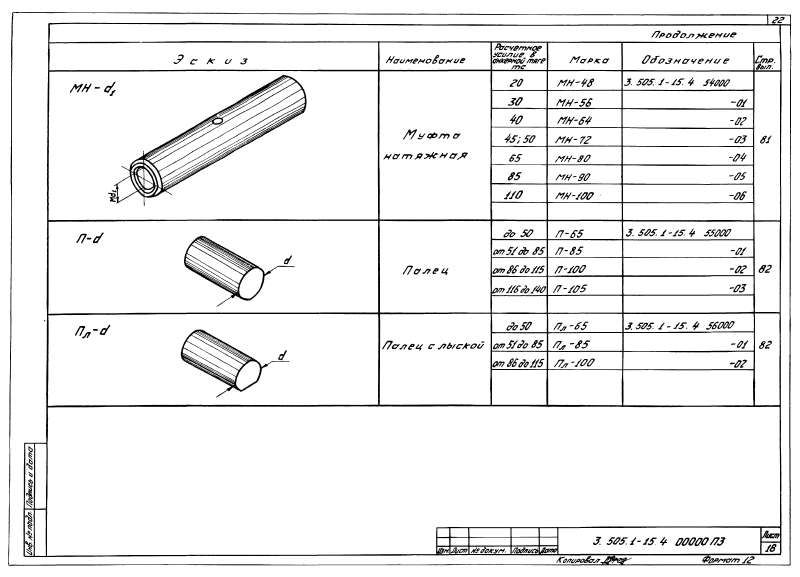 22
Продолжение
Эскиз Наименование Расчетное усилие в анкерной тяге тс Марка Обозначение Стр. вып.
МН-d₁ Муфта натяжная 20 МН-48 3.505.1-15.4 54000 81
30 МН-56 -01
40 МН-64 -02
45; 50 МН-72 -03
65 МН-80 -04
85 МН-90 -05
110 МН-100 -06
Мd₁
П-d Палец до 50 П-65 3.505.1-15.4 55000 82
d от 51 до 85 П-85 -01
от 86 до 115 П-100 -02
от 116 до 140 П-105 -03
Пл-d Палец с лыской до 50 Пл-65 3.505.1-15.4 56000 82
d от 51 до 85 Пл-85 -01
от 86 до 115 Пл-100 -02
Инв. № подл Подпись и дата
Изм. Лист № докум. Подпись Дата
3.505.1-15.4 00000 ПЗ
Лист
18
Копировал Формат 12